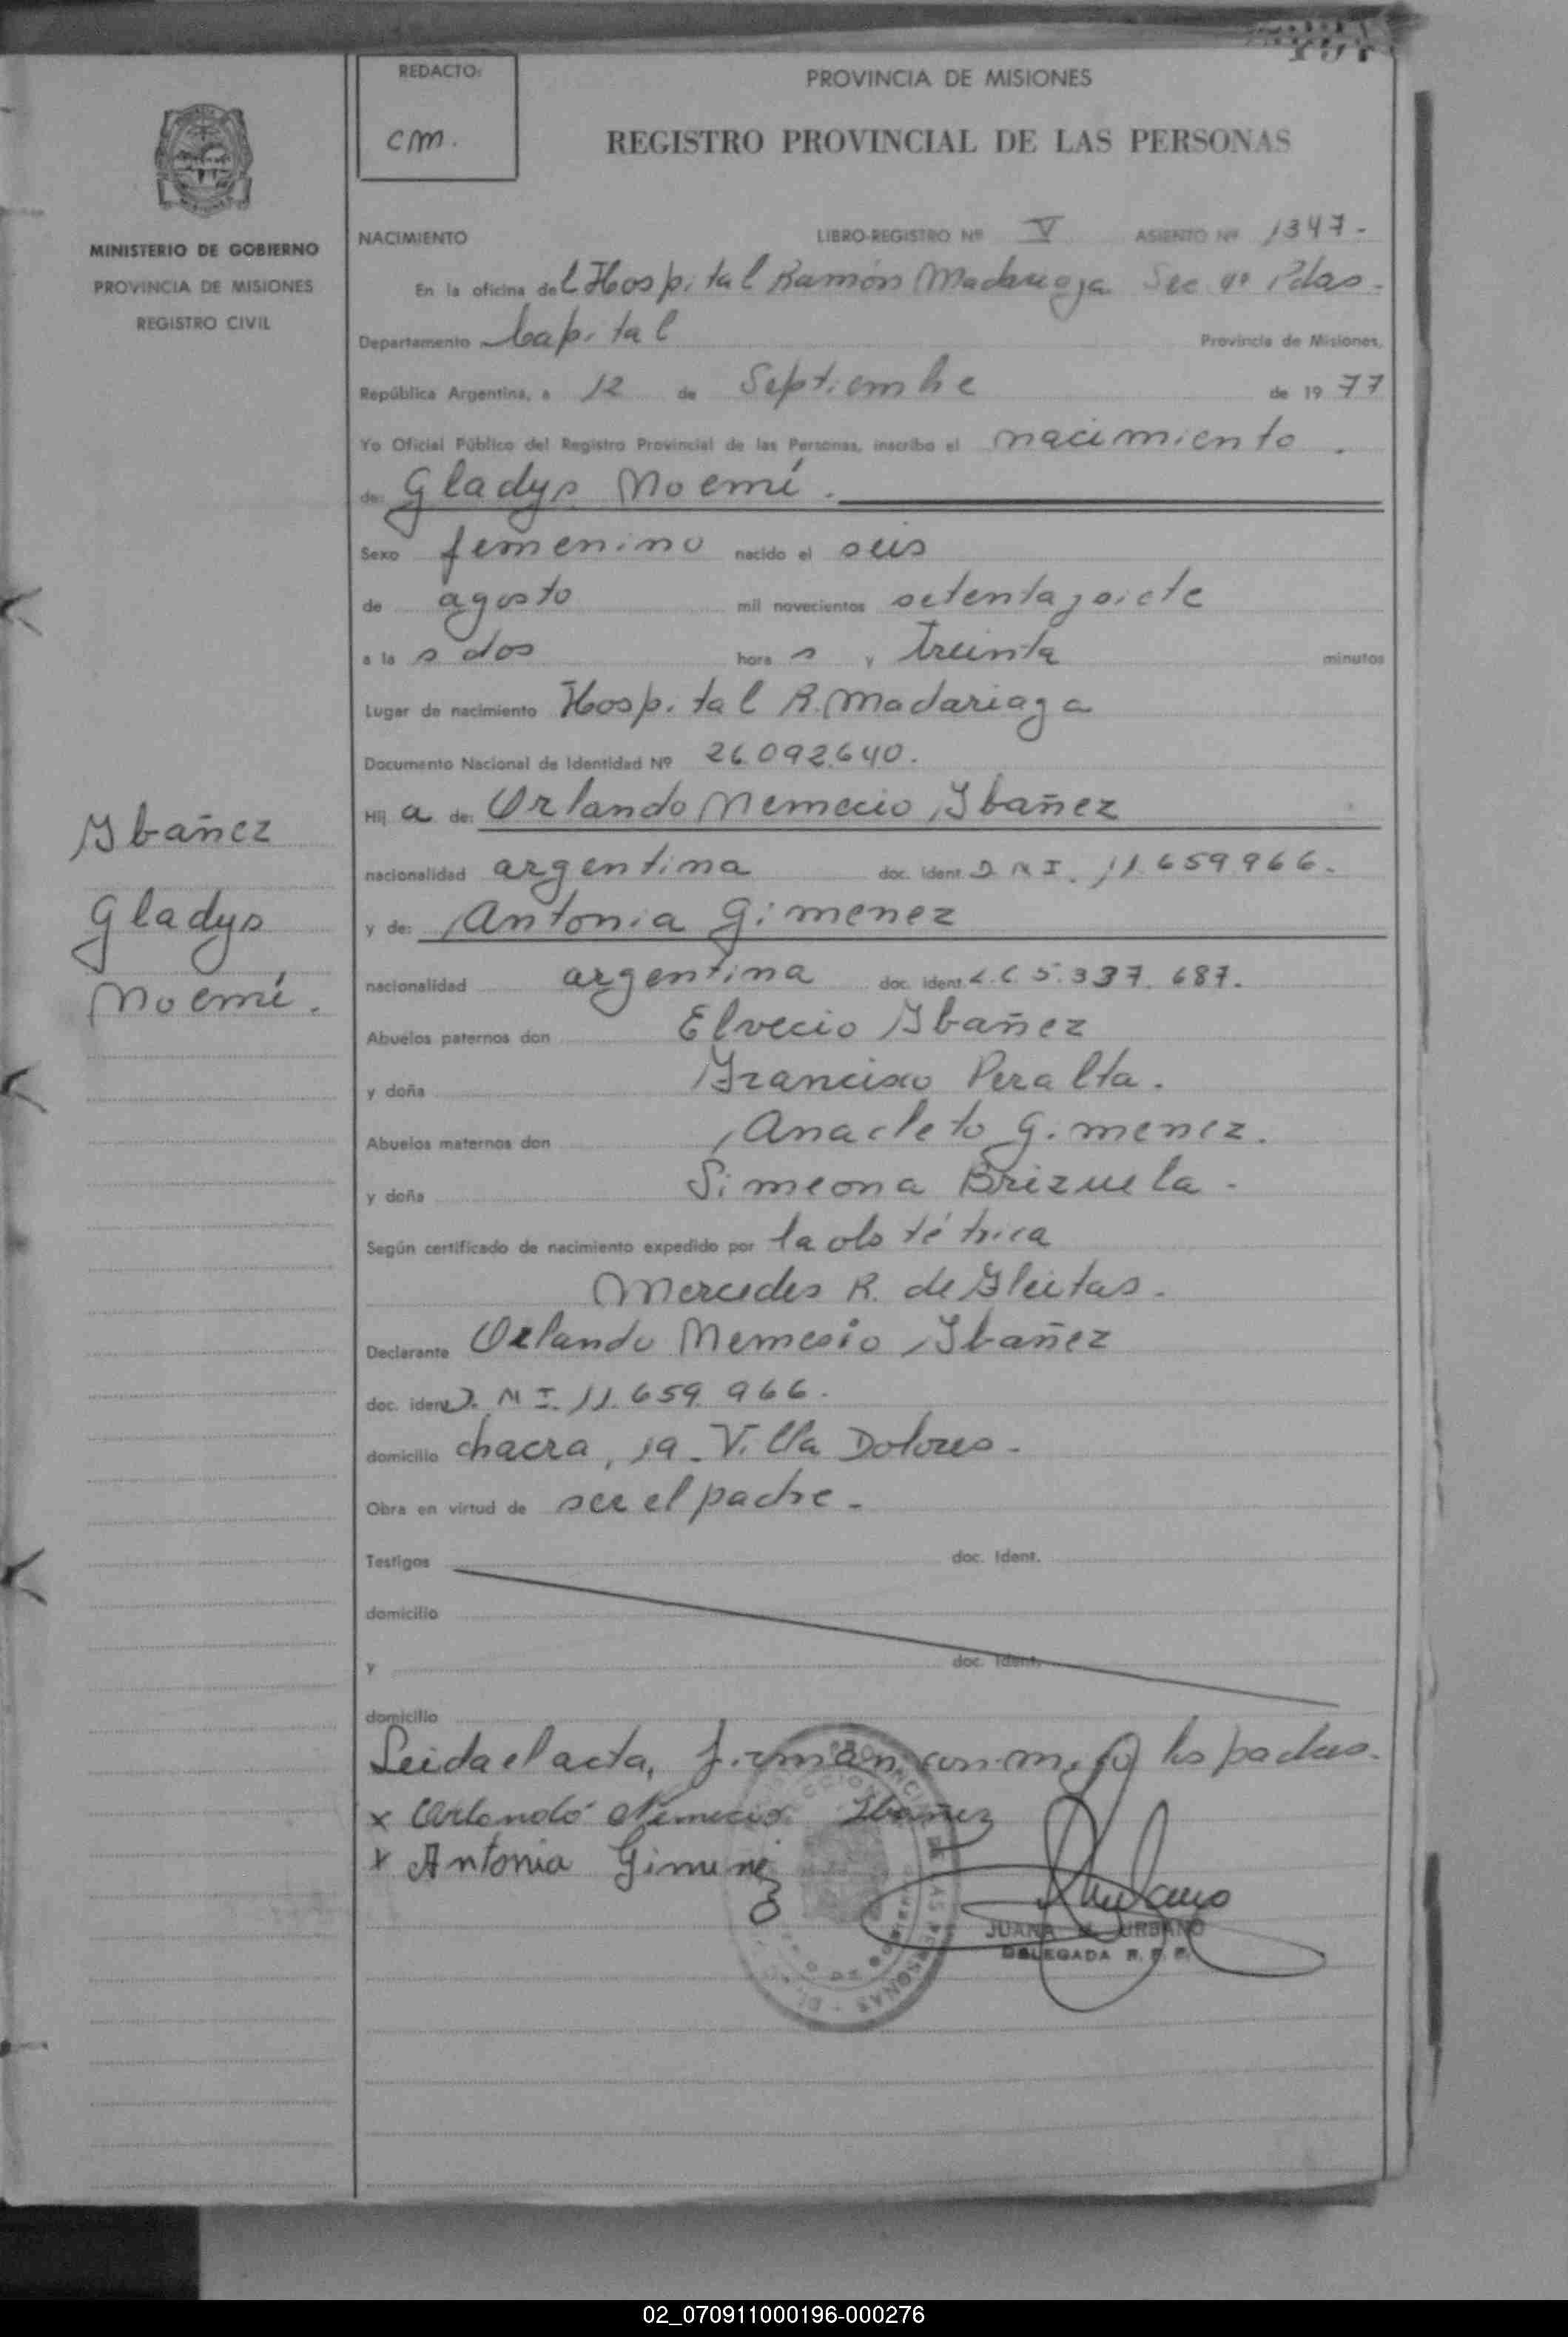 REDACTO:
cm.
PROVINCIA DE MISIONES
REGISTRO PROVINCIAL DE LAS PERSONAS
MINISTERIO DE GOBIERNO
PROVINCIA DE MISIONES
REGISTRO CIVIL
NACIMIENTO LIBRO-REGISTRO Nº V ASIENTO Nº 1347-
En la oficina del Hospital Ramón Madariaga Sec Pdas.
Departamento Capital Provincia de Misiones,
República Argentina, a 12 de Septiembre de 1977
Yo Oficial Público del Registro Provincial de las Personas, inscribo el nacimiento.
de: Gladys Noemí.
Sexo femenino nacido el seis
de agosto mil novecientos setenta y siete
a las dos horas y treinta minutos
Lugar de nacimiento Hospital R. Madariaga
Documento Nacional de Identidad Nº 26.092.640.
Hija de: Orlando Nemecio Ibañez
nacionalidad argentina doc. ident. D N I. 11.659.966.
y de: Antonia Gimenez
nacionalidad argentina doc. ident. L.C 5.337.687.
Abuelos paternos don Elvecio Ibañez
y doña Francisca Peralta.
Abuelos maternos don Anacleto Gimenez.
y doña Simeona Brizuela-
Según certificado de nacimiento expedido por la obstétrica
Mercedes R. de Fleitas.
Declarante Orlando Nemesio Ibañez
doc. ident. D. N I. 11.659.966.
domicilio chacra, 19- Villa Dolores-
Obra en virtud de ser el padre-
Testigos doc. Ident.
domicilio
y doc. Ident.
domicilio
Leida el acta, firman conmigo los padres.
x Orlando Nemecio Ibañez
x Antonia Gimenez
JUANA M. URBANO
DELEGADA R. P. P.
Ibañez
Gladys
Noemí.
02_070911000196-000276